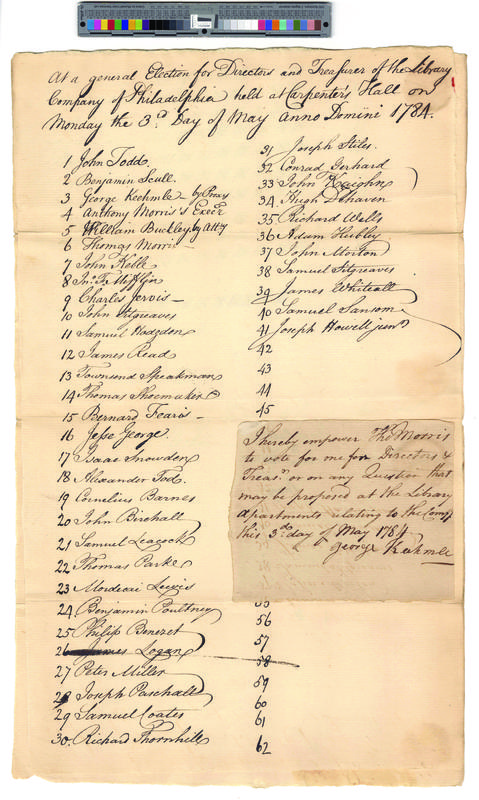 At a general Election for Directors and Treasurer of the Library
Company of Philadelphia held at Carpenter's Hall on
Monday the 3d. Day of May Anno Domini 1784.
1 John Todd
2 Benjamin Scull.
3 George Keehmle by Proxy
4 Anthony Morris's Exec'r
5 William Buckley by Att'y
6 Thomas Morris
7 John Keble
8 Jno. F. Mifflin
9 Charles Jervis
10 John Fitzgreaves
11 Samuel Hodgdon
12 James Read
13 Townsend Speakman
14 Thomas Shoemaker
15 Bernard Fearis
16 Jesse George
17 Isaac Snowden
18 Alexander Tod.
19 Cornelius Barnes
20 John Birchall
21 Samuel Leacock
22 Thomas Parke
23 Mordecai Lewis
24 Benjamin Poultney
25 Philip Benezet
26 James Logan
27 Peter Miller
28 Joseph Paschall
29 Samuel Coates
30. Richard Thornhill
31 Joseph Stiles.
32 Conrad Gerhard
33 John Kaighn
34 Hugh DeHaven
35 Richard Wells
36 Adam Hubley
37 John Morton
38 Samuel Fitgreaves
39 James Whiteall
40 Samuel Sansom
41 Joseph Howell junr
42
43
44
45
I hereby empower Tho Morris
to vote for me for Directors &
Treasr. or on any Question that
may be proposed at the Library
Apartments relating to the Compy
this 3d. day of May 1784
George Keehmle
55
56
57
58
59
60
61
62